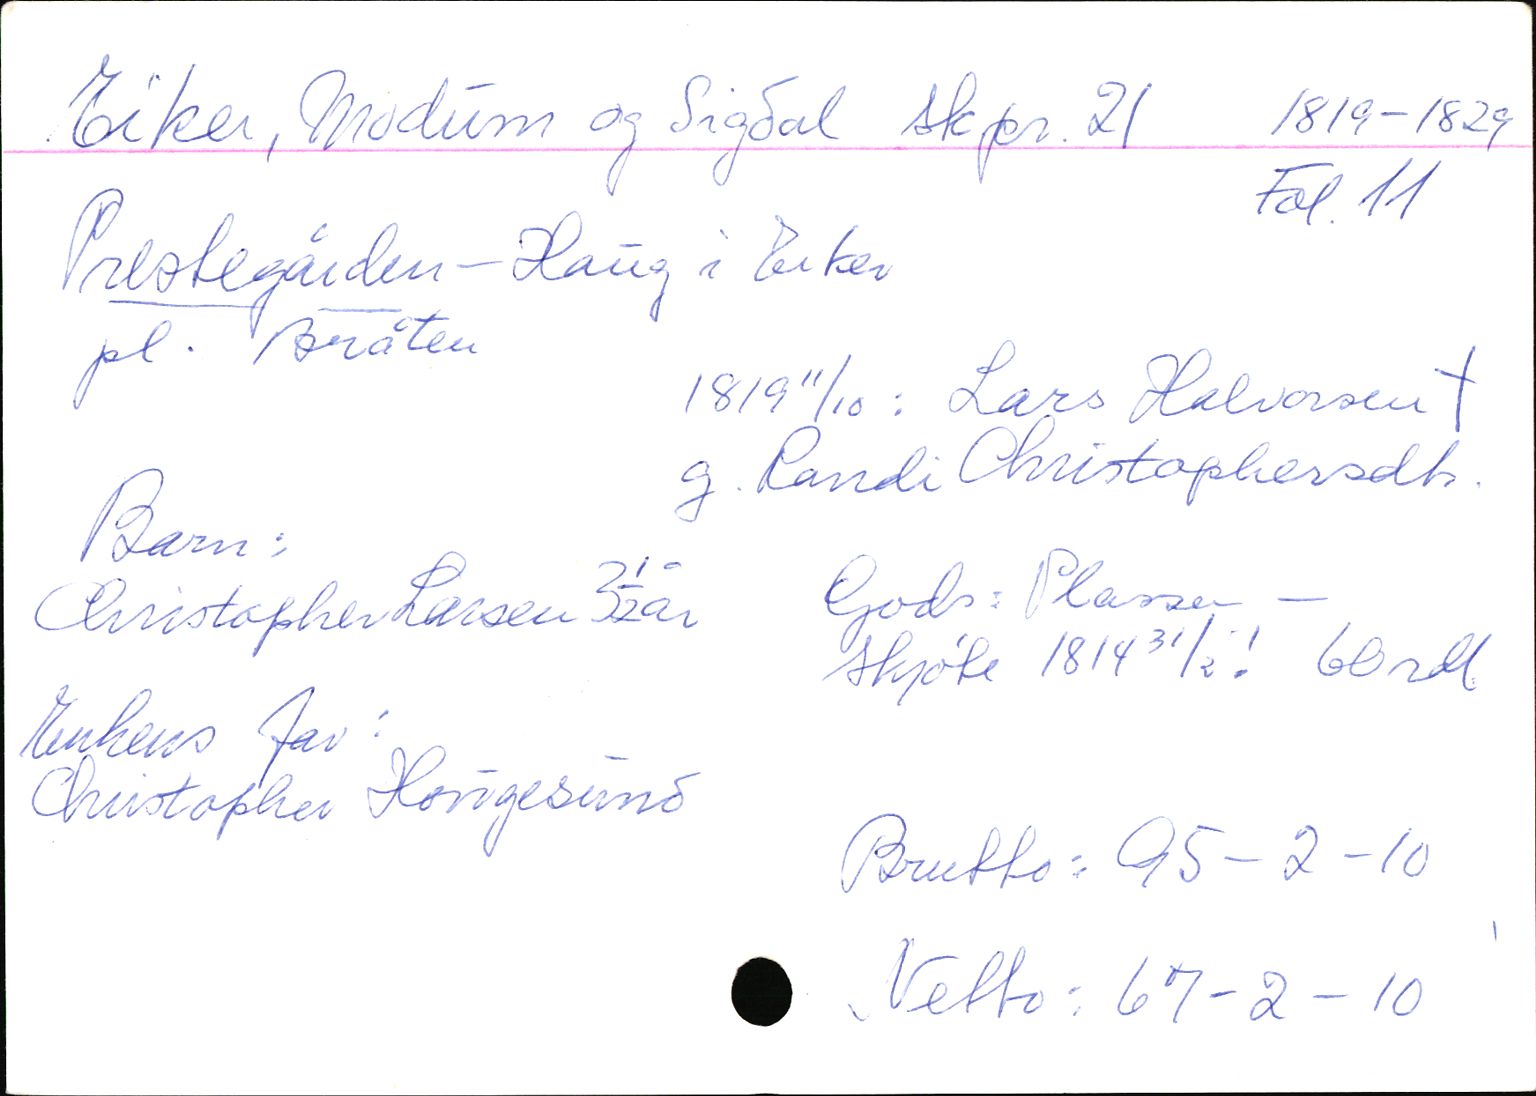 Eiker, Modum og Sigdal skpr. 21 1819-1829
Fol. 11
Prestegården - Haug i Eiker
pl. Bråten
1819 11/10 : Lars Halvorsen †
g. Randi Christophersdtr.
Barn:
Christopher Larsen 3 1/2 år
Gods: Plassen -
Skjøte 1814 31/2 ! 60 rdl.
Enkens far:
Christopher Hougesund
Brutto: 95-2-10
Netto: 67-2-10